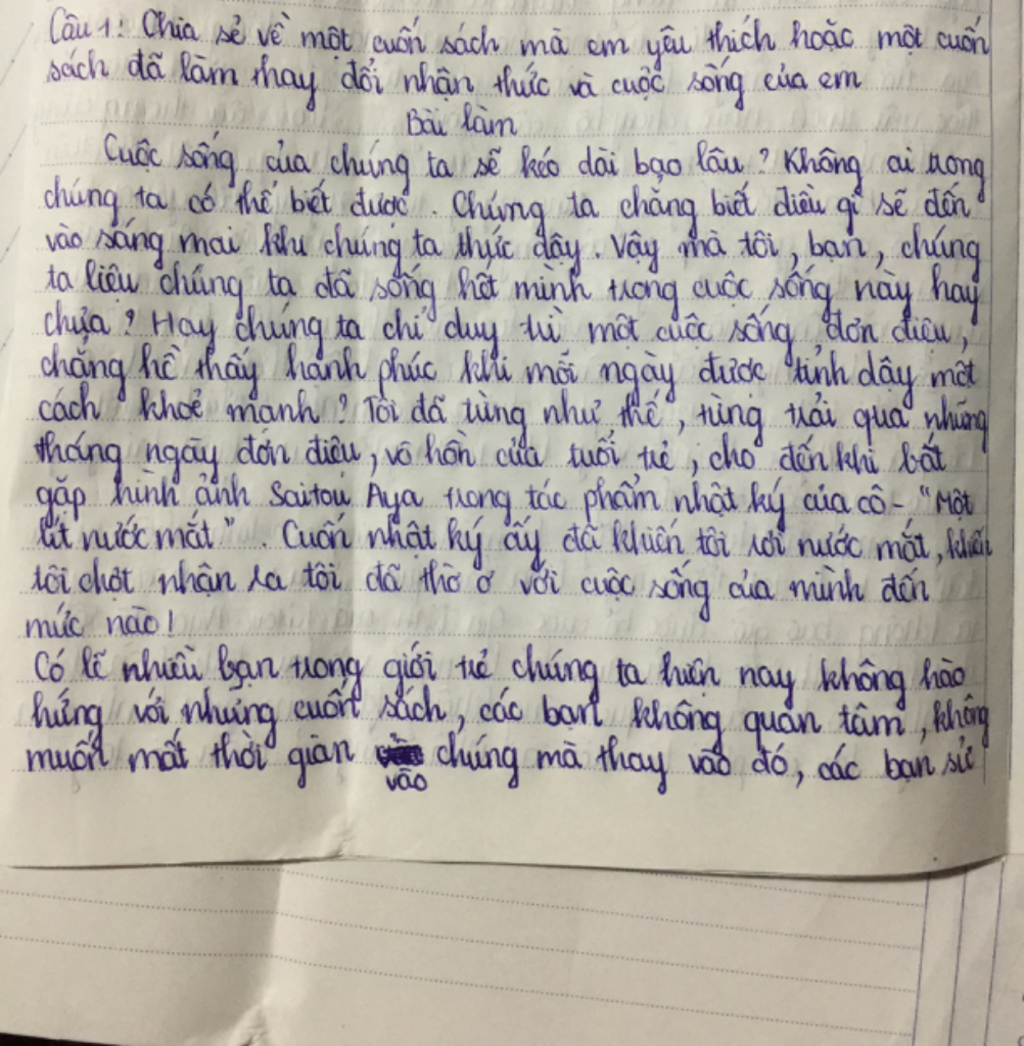 Câu 1: Chia sẻ về một cuốn sách mà em yêu thích hoặc một cuốn
sách đã làm thay đổi nhận thức và cuộc sống của em
Bài làm
Cuộc sống của chúng ta sẽ kéo dài bao lâu? Không ai trong
chúng ta có thể biết được. Chúng ta chẳng biết điều gì sẽ đến
vào sáng mai khi chúng ta thức dậy. Vậy mà tôi, bạn, chúng
ta liệu chúng ta đã sống hết mình trong cuộc sống này hay
chưa? Hay chúng ta chỉ duy trì một cuộc sống đơn điệu,
chẳng hề thấy hạnh phúc khi mỗi ngày được tỉnh dậy một
cách khoẻ mạnh? Tôi đã từng như thế, từng trải qua những
tháng ngày đơn điệu, vô hồn của tuổi trẻ, cho đến khi bắt
gặp hình ảnh Saitou Aya trong tác phẩm nhật ký của cô - "Một
lít nước mắt". Cuốn nhật ký ấy đã khiến tôi rơi nước mắt, khiến
tôi chợt nhận ra tôi đã thờ ơ với cuộc sống của mình đến
mức nào!
Có lẽ nhiều bạn trong giới trẻ chúng ta hiện nay không hào
hứng với những cuốn sách, các bạn không quan tâm, không
muốn mất thời gian vào chúng mà thay vào đó, các bạn sử